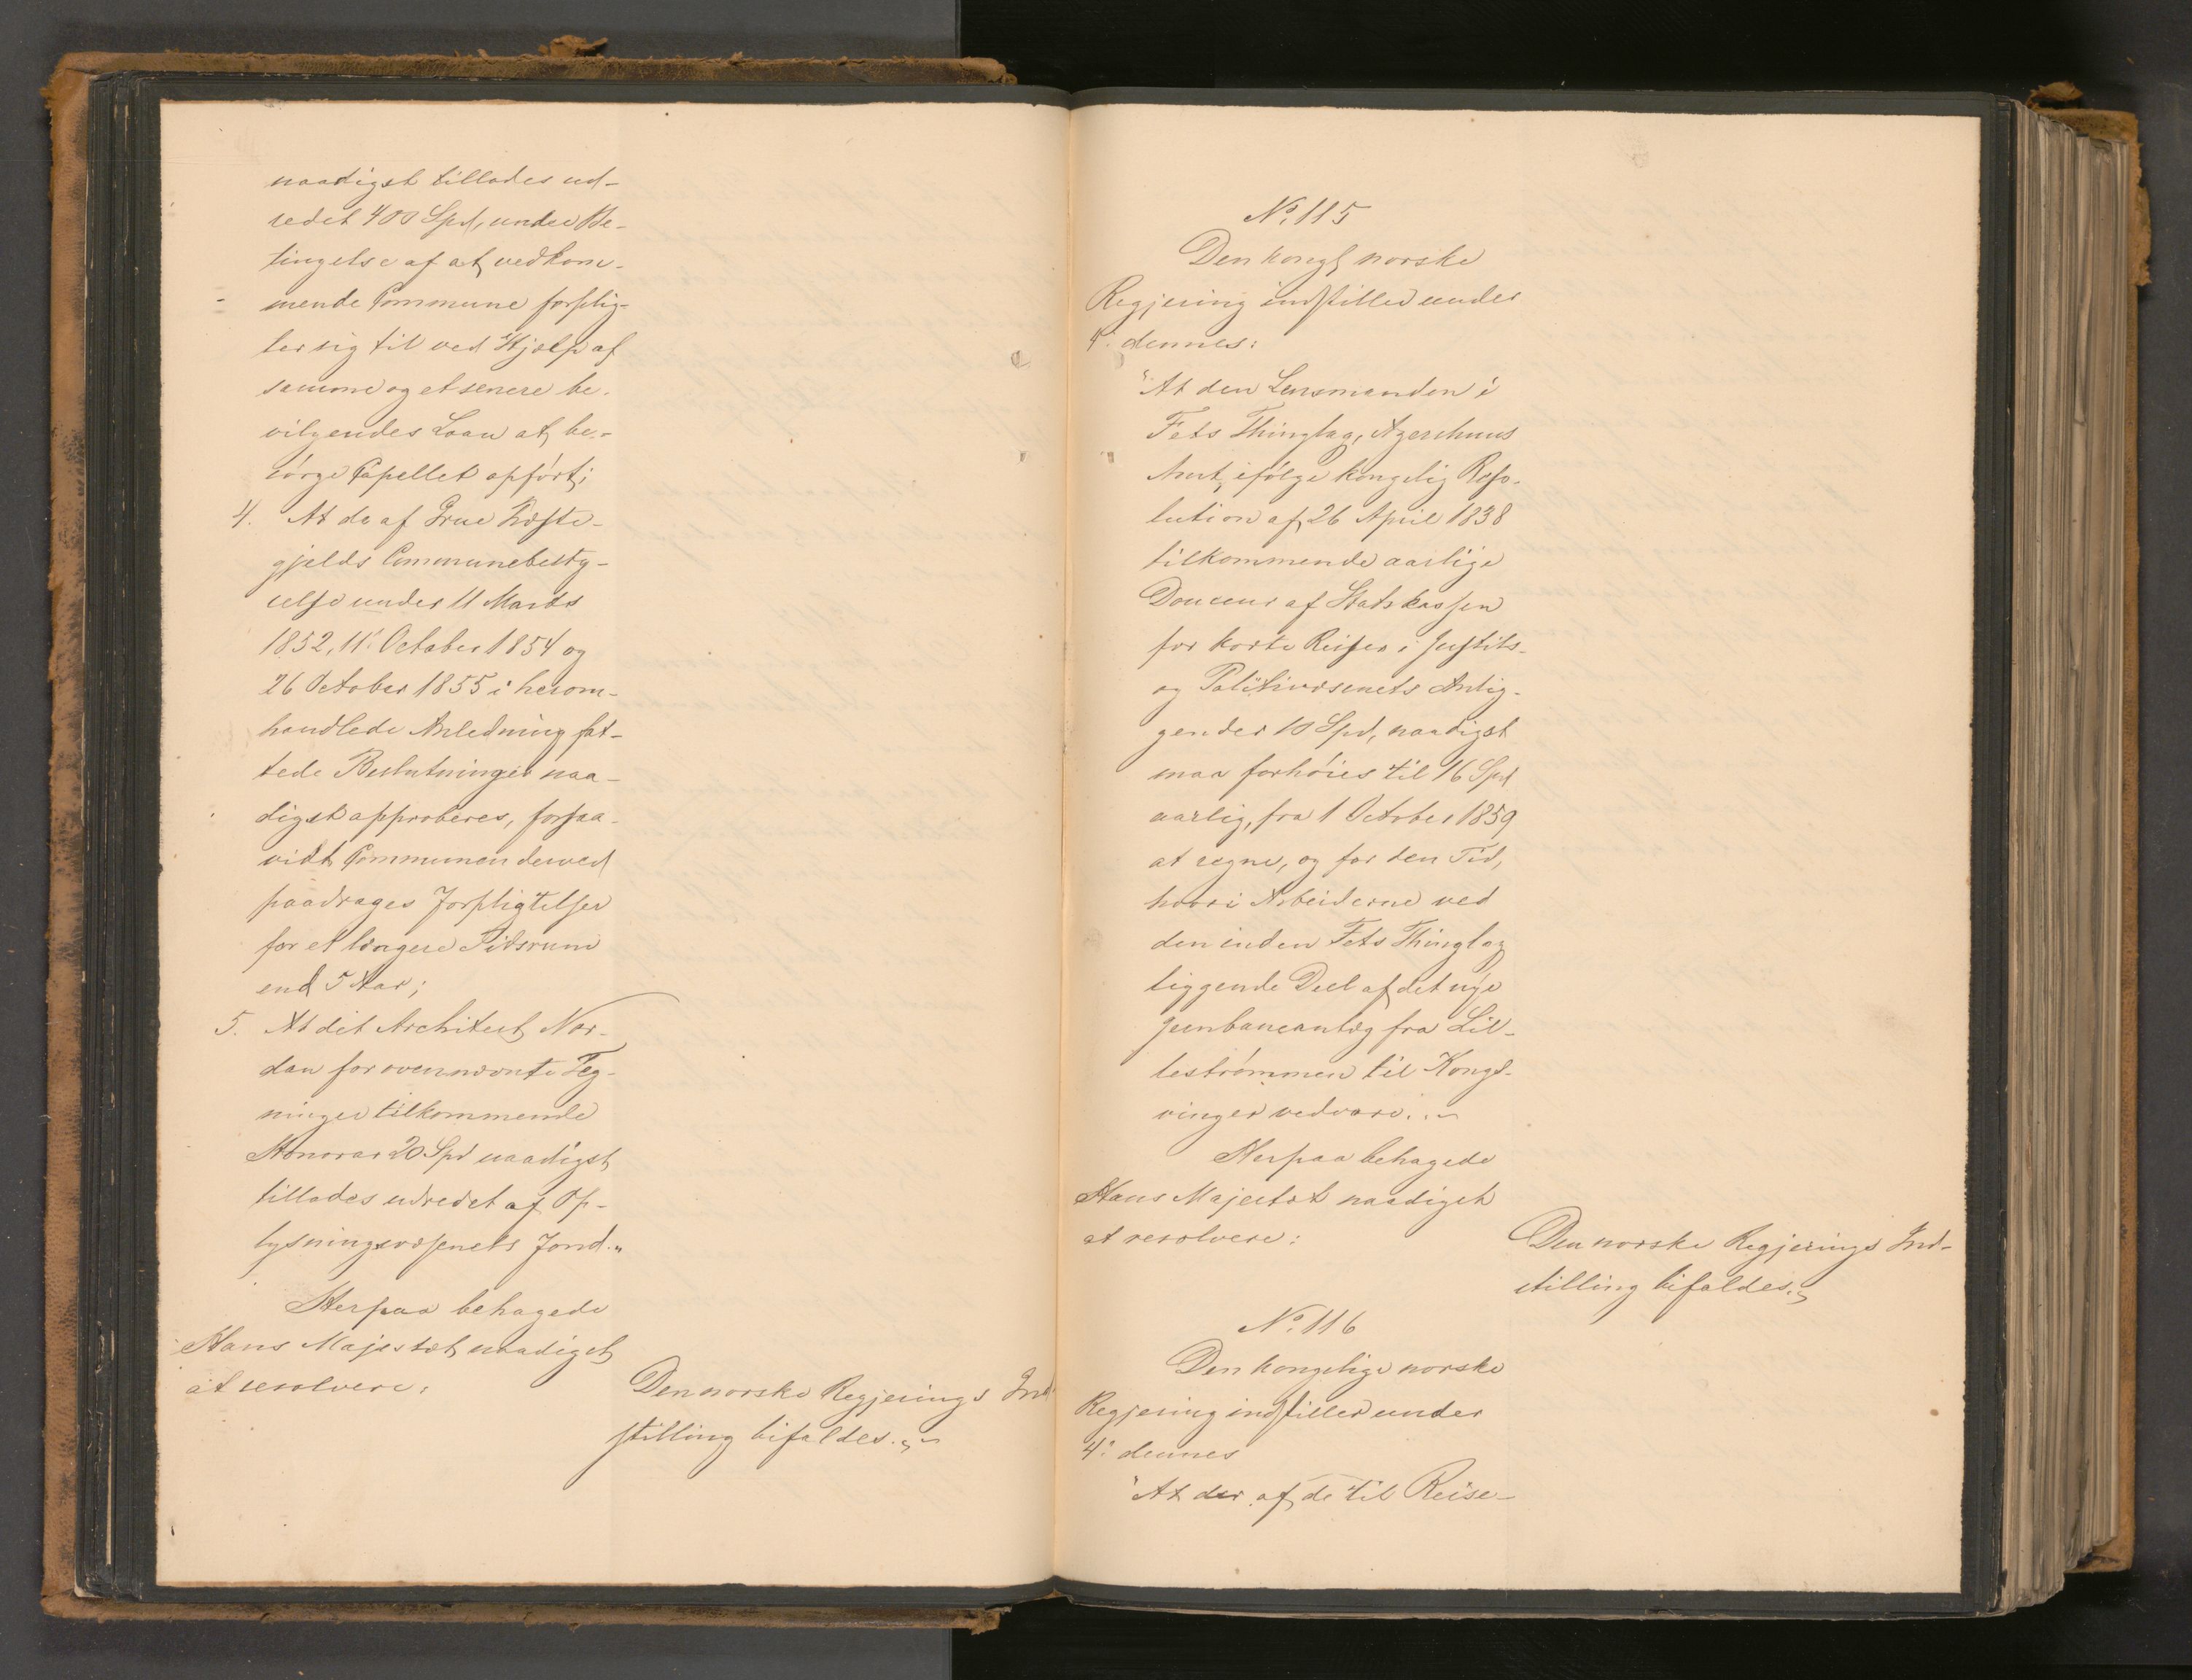 naadigst tillades ud-
redet 400 Spd, under Be-
tingelse af at vedkom-
mende Commune forplig-
ter sig til ved Hjælp af
samme og et senere be-
vilgendes Laan at be-
sørge Capellet opført;
4. At de af Grue Præste-
gjelds Communebesty-
relse under 11 Marts
1852, 11 October 1854 og
26 October 1855 i herom-
handlede Anledning fat-
tede Beslutninger naa-
digst approberes, forsaa-
vidt Communen derved
paadrages Forpligtelser
for et længere Tidsrum
end 5 Aar;
5. At det Architect Nor-
dan for ovennævnte Teg-
ninger tilkommende
Honorar 20 Spd naadigst
tillades udredet af Op-
lysningsvæsenets Fond."
Herpaa behagede
Hans Majestæt naadigst
at resolvere:
Den norske Regjerings Ind-
stilling bifaldes.
No. 115
Den kongl norske
Regjering indstiller under
4. dennes:
"At den Lensmanden i
Fets Thinglag, Agershuus
Amt, ifølge kongelig Reso-
lution af 26 April 1838
tilkommende aarlige
Douceur af Statskassen
for korte Reiser i Justits-
og Politivæsenets Anlig-
gender 10 Spd, naadigst
maa forhøies til 16 Spd
aarlig, fra 1 October 1859
at regne, og for den Tid,
hvori Arbeiderne ved
den inden Fets Thinglag
liggende Deel af det nye
Jernbaneanlæg fra Lil-
lestrømmen til Kongs-
vinger vedvare."
Herpaa behagede
Hans Majestæt naadigst
at resolvere:
Den norske Regjerings Ind-
stilling bifaldes."
No. 116
Den kongelige norske
Regjering indstiller under
4. dennes
"At der af de til Reise-